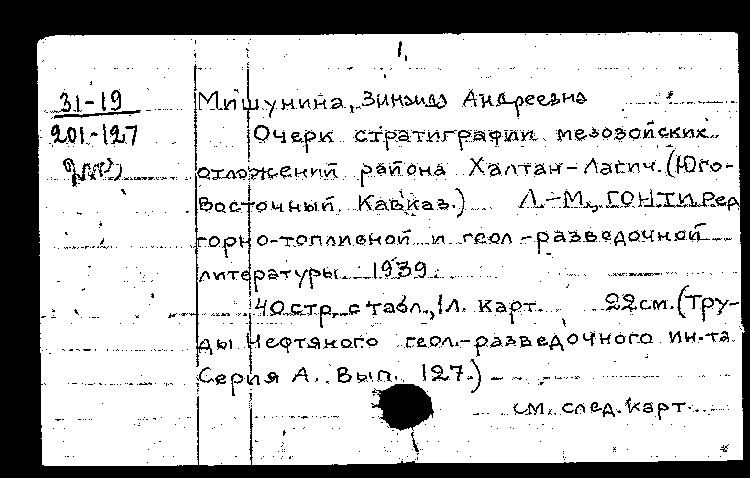 1.
31-19
201-127
Мишунина, Зинаида Андреевна
Очерк стратиграфии мезозойских
отложений района Халтан-Лагич. (Юго-
Восточный Кавказ.) Л.-М., ГОНТИ. Ред
горно-топливной и геол.-разведочной
литературы. 1939.
40 стр. с табл., 1 л. карт. 22 см. (Тру-
ды Нефтяного геол.-разведочного ин-та.
Серия А. Вып. 127.)
см. след. карт.